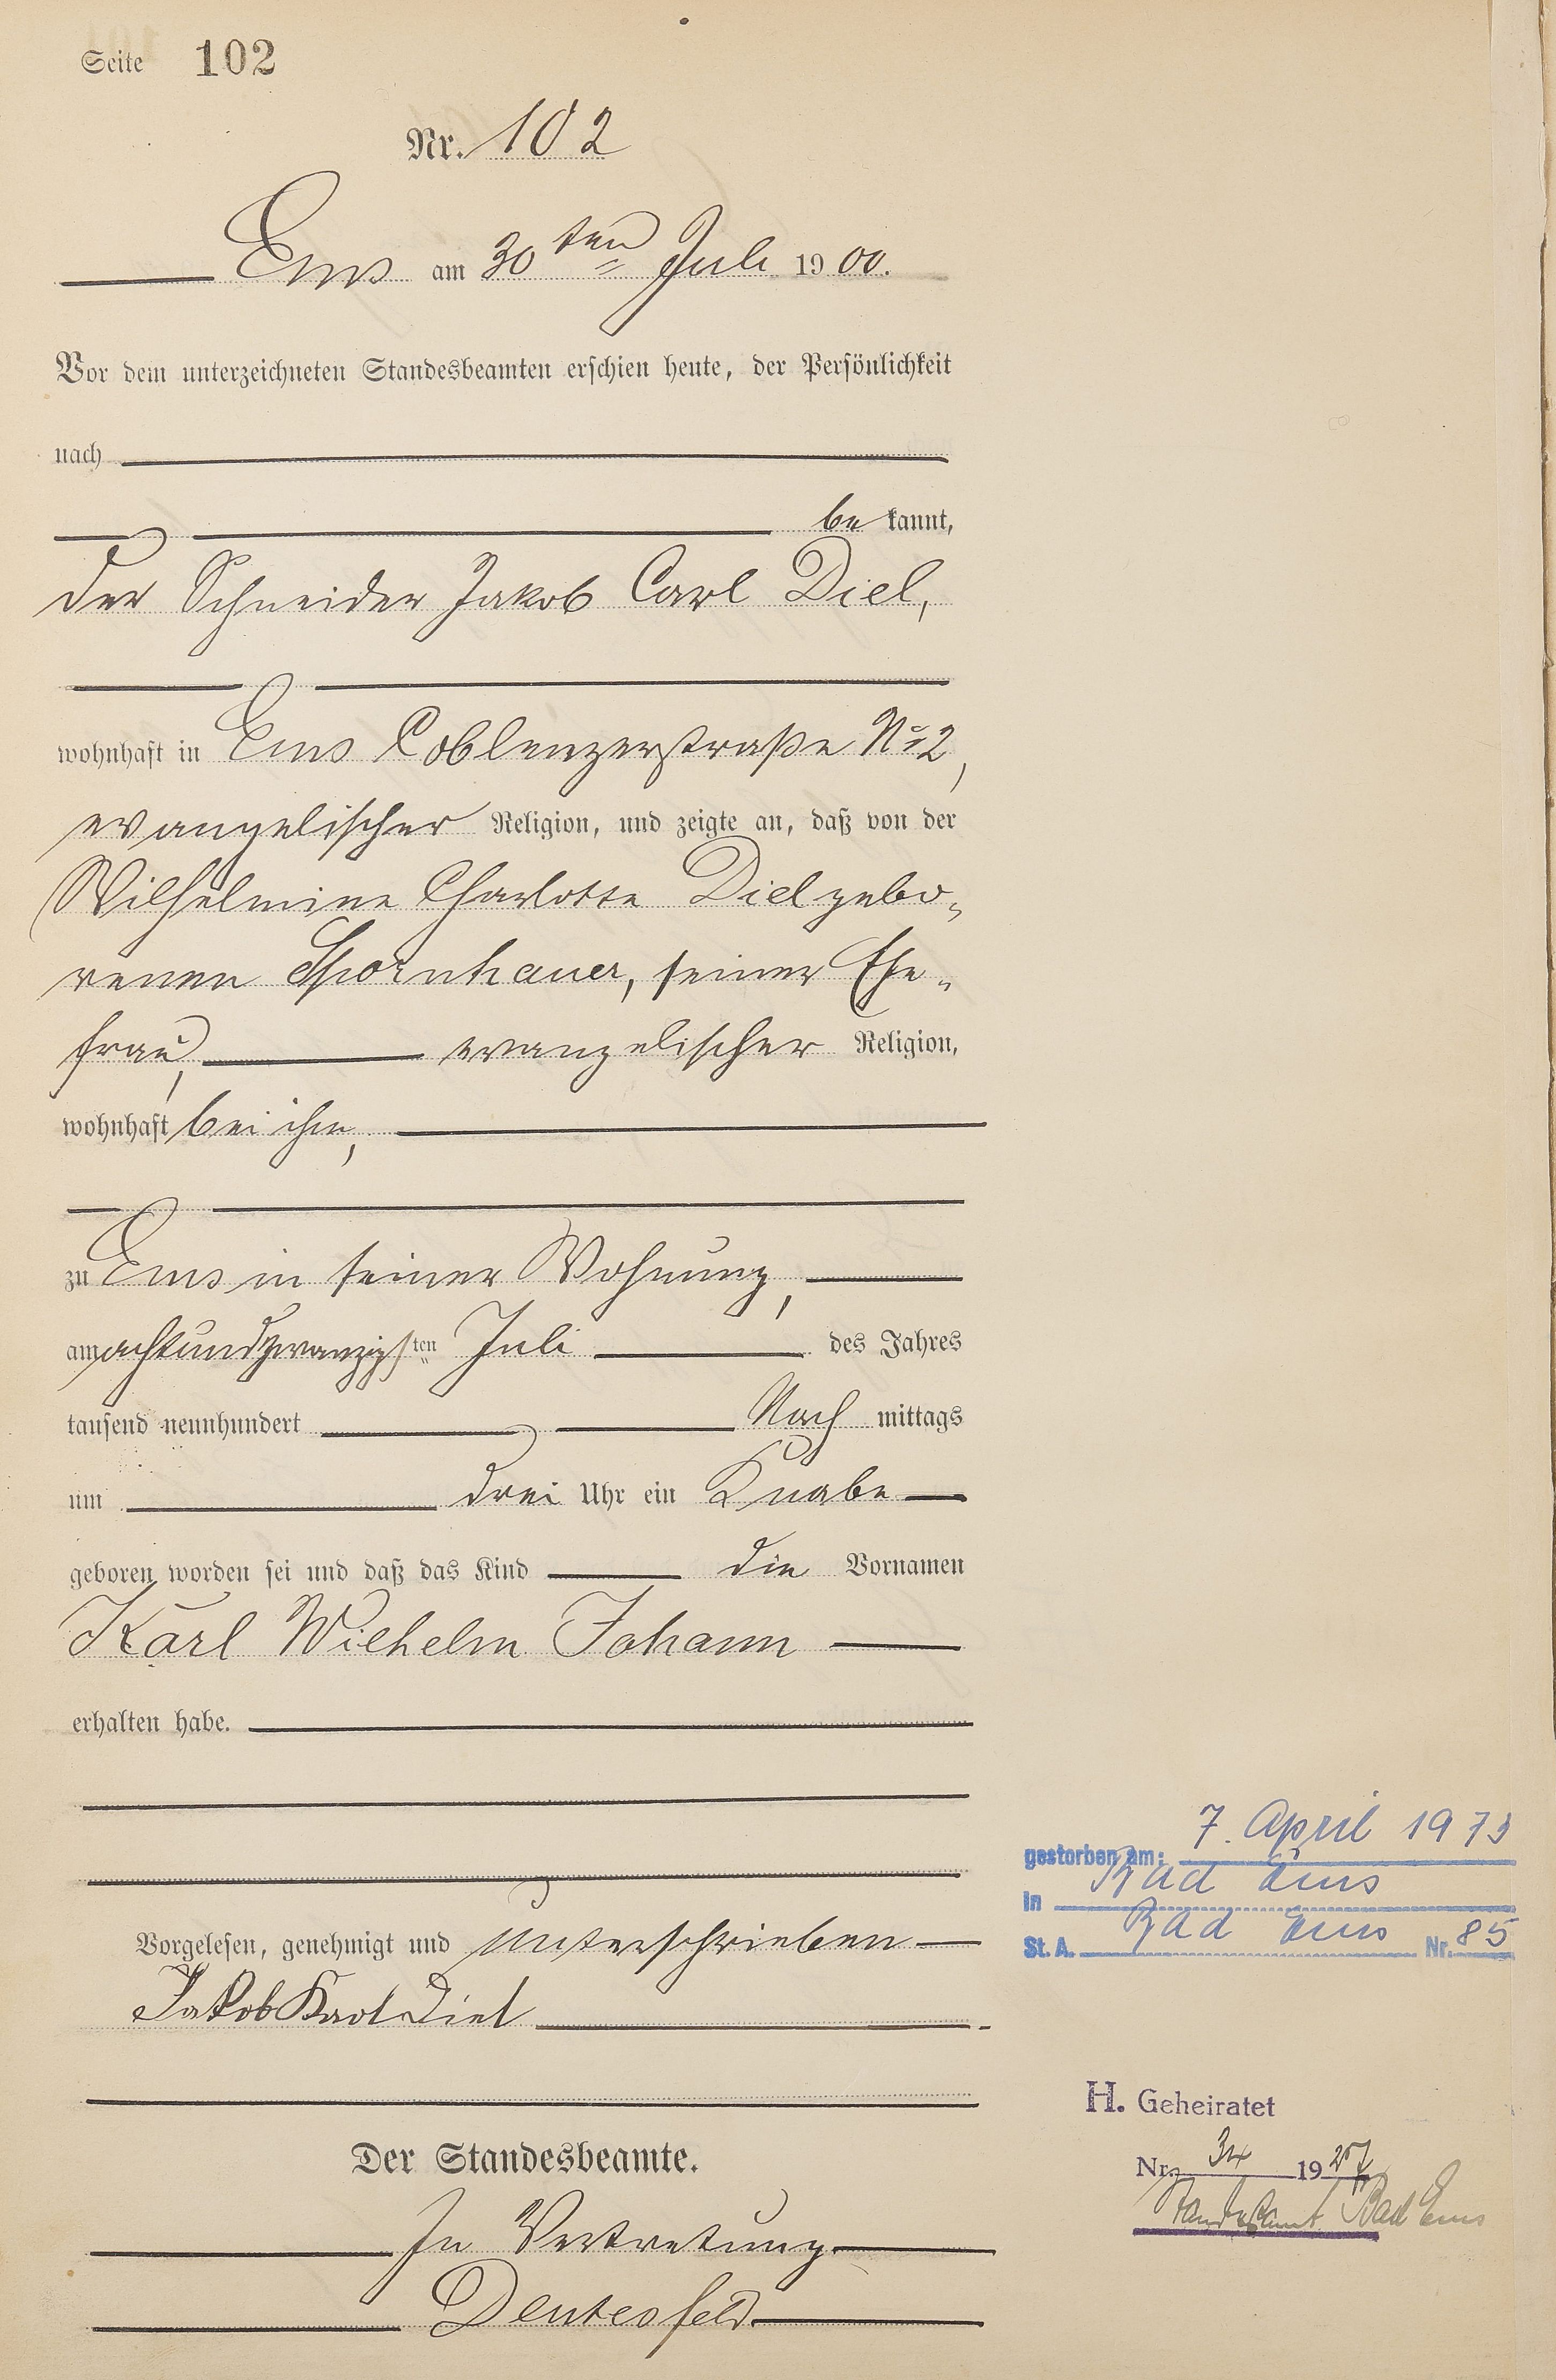 Seite 102
Nr. 102
Ems am 30ten Juli 1900.
Vor dem unterzeichneten Standesbeamten erschien heute, der Persönlichkeit
nach
be kannt,
der Schneider Jakob Carl Diel,
wohnhaft in Ems Coblenzerstraße No 2,
evangelischer Religion, und zeigte an, daß von der
Wilhelmine Charlotte Diel gebo-
renen Spornhauer, seiner Ehe-
frau, evangelischer Religion,
wohnhaft bei ihm,
zu Ems in seiner Wohnung,
am achtundzwanzigsten Juli des Jahres
tausend neunhundert Nach mittags
um drei Uhr ein Knabe
geboren worden sei und daß das Kind die Vornamen
Karl Wilhelm Johann
erhalten habe.
Vorgelesen, genehmigt und unterschrieben
Jakob Karl Diel
Der Standesbeamte.
In Vertretung
gestorben am: 7. April 1973
in Bad Ems
St. A. Bad Ems Nr. 85
H. Geheiratet
Nr. 34 19
Standesamt Bad Ems